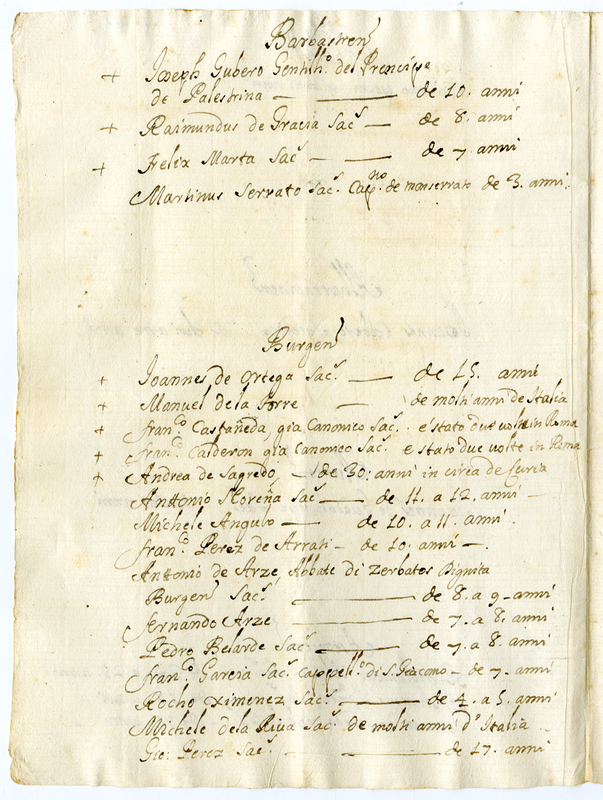 Barbastren̄
+ Joseph Gubero Gentilh.º del Prencipe
de Palestrina — — de 10. anni
+ Raimundus de Gracia Sac.ˢ — de 8. anni
+ Felix Marta Sac.ˢ — — de 7. anni
Martinus Serrato Sac.ˢ Cap.ⁿº de monserrato de 3. anni.
Burgen̄
+ Joannes de Ortega Sac.ˢ — de 15. anni
+ Manuel dela Torre — de molti anni de Italia
+ fran.º Castañeda gia Canonico Sac.ˢ e stato due volte in Roma
+ fran.º Calderon gia Canonico Sac.ˢ e stato due volte in Roma
+ Andrea de Sagredo, — de 30. anni in circa de Curia
Anttonio Moreña Sac.ˢ — de 11. a 12. anni —
Michele Angulo — de 10. a 11. anni.
fran.º Perez de Arrati — de 10. anni —.
Anttonio de Arze, Abbate di Zerbatos Dignita
Burgen̄ Sac.ˢ — de 8. a 9. anni
fernando Arze — de 7. a 8. anni
Pedro Belarde Sac.ˢ — de 7. a 8. anni
fran.º Garcia Sac.ˢ Cappell.º di S. Giacomo — de 7. anni
Rocho Ximenez Sac.ˢ — de 4. a 5. anni
Michele dela Riua Sac.ˢ de molti anni d'Italia
Gio: Perez Sac.ˢ — — de 17. anni